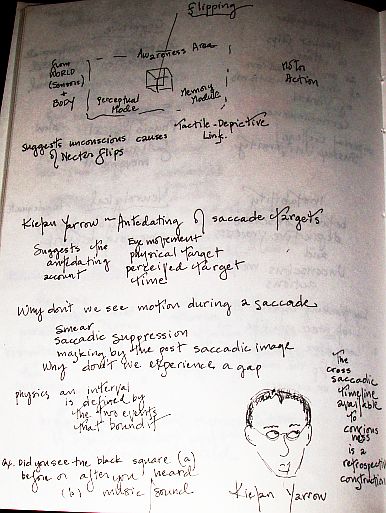 Flipping
Awareness Area
from
WORLD
(sensors)
+
BODY
Motor
Action
Perceptual
Mode
Memory
Module
Tactile-Depictive
Link.
Suggests unconscious causes
of Necker flips
Kielan Yarrow ~ Antedating of saccade targets
Suggests the
antedating
account
Eye movement
physical target
perceived target
time
Why don't we see motion during a saccade
smear
saccadic suppression
masking by the post saccadic image
Why don't we experience a gap
physics an interval
is defined by
the two events
that bound it
The
cross
saccadic
timeline
available
to
conscious
ness
is a
retrospective
construction
Q. Did you see the black square (a)
before or after you heard
(b) music / sound
Kielan Yarrow